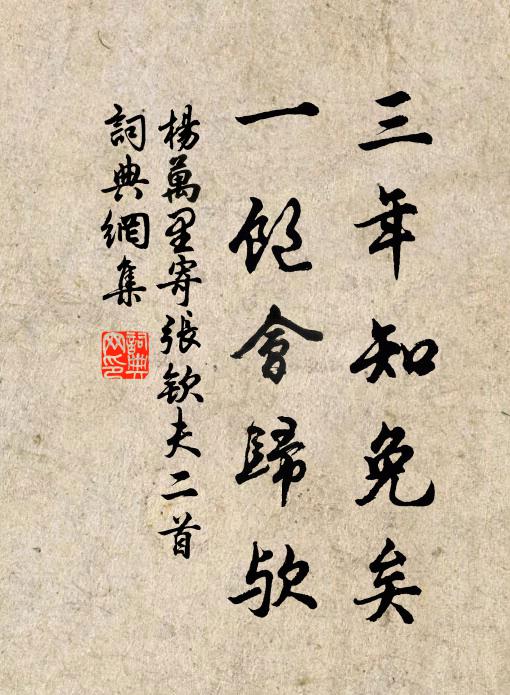 三年知免矣
一飽會歸欤
楊萬里寄張欽夫二首
詞典網集
詞典
网印